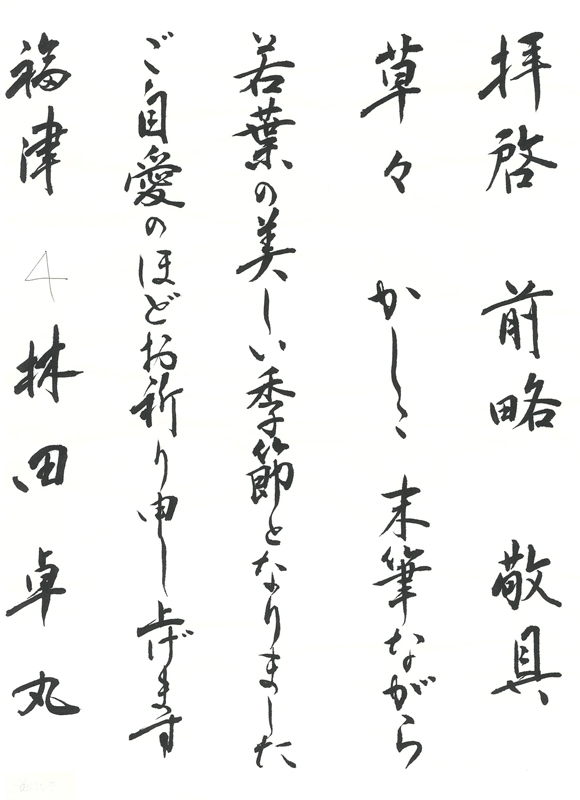 拝啓 前略 敬具
草々 かしこ 末筆ながら
若葉の美しい季節となりました
ご自愛のほどお祈り申し上げます
福津 4 林田卓丸